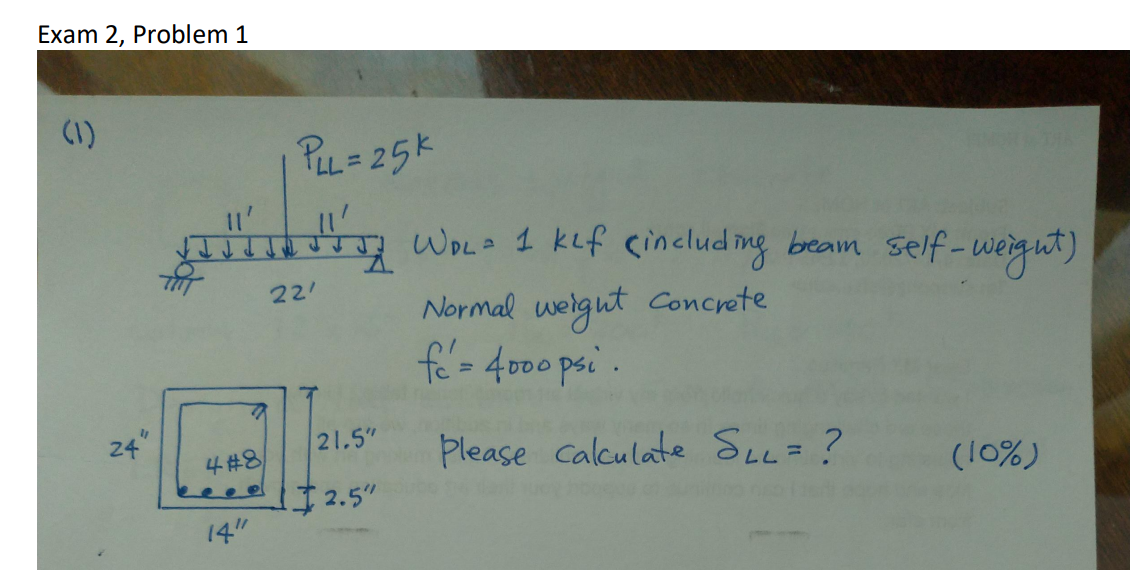 Exam 2, Problem 1
(1)
PLL = 25k
11' 11'
WDL = 1 kLf (including beam self-weight)
22'
Normal weight Concrete
fc' = 4000 psi.
24"
21.5"
4#8
Please calculate δLL = ? (10%)
2.5"
14"